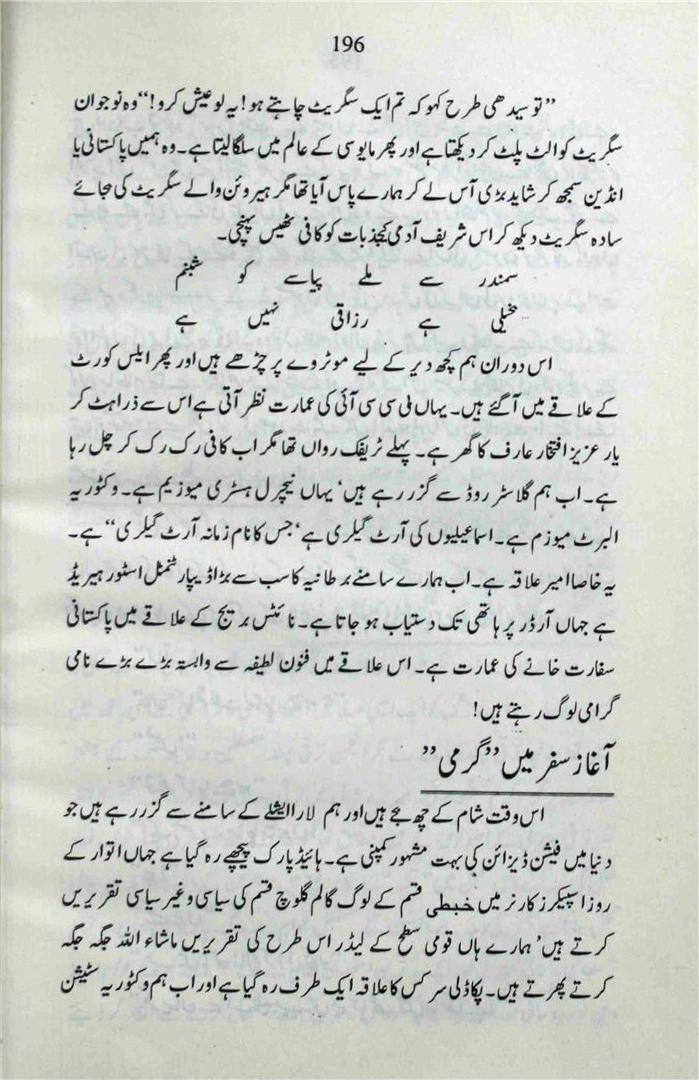 196
”تو سیدھی طرح کہو کہ تم ایک سگریٹ چاہتے ہو! یہ لو عیش کرو!“ وہ نوجوان
سگریٹ کو الٹ پلٹ کر دیکھتا ہے اور پھر مایوسی کے عالم میں سلگا لیتا ہے۔ وہ ہمیں پاکستانی یا
انڈین سمجھ کر شاید بڑی آس لے کر ہمارے پاس آیا تھا مگر ہیروئن والے سگریٹ کی بجائے
سادہ سگریٹ دیکھ کر اس شریف آدمی کے جذبات کو کافی ٹھیس پہنچی۔
سمندر سے ملے پیاسے کو شبنم
بخیلی ہے رزاقی نہیں ہے
اس دوران ہم کچھ دیر کے لیے موٹر وے پر چڑھے ہیں اور پھر ایلس کورٹ
کے علاقے میں آ گئے ہیں۔ یہاں بی سی سی آئی کی عمارت نظر آتی ہے اس سے ذرا ہٹ کر
یار عزیز افتخار عارف کا گھر ہے۔ پہلے ٹریفک رواں تھا مگر اب کافی رک رک کر چل رہا
ہے۔ اب ہم گلاسٹر روڈ سے گزر رہے ہیں‘ یہاں نیچرل ہسٹری میوزیم ہے۔ وکٹوریہ
البرٹ میوزم ہے۔ اسماعیلیوں کی آرٹ گیلری ہے‘ جس کا نام زمانہ آرٹ گیلری“ ہے۔
یہ خاصا امیر علاقہ ہے۔ اب ہمارے سامنے برطانیہ کا سب سے بڑا ڈیپارٹمنٹل اسٹور ہیریڈ
ہے جہاں آرڈر پر ہاتھی تک دستیاب ہو جاتا ہے۔ نائٹس بریج کے علاقے میں پاکستانی
سفارت خانے کی عمارت ہے۔ اس علاقے میں فنون لطیفہ سے وابستہ بڑے بڑے نامی
گرامی لوگ رہتے ہیں!
آغاز سفر میں ”گرمی”
اس وقت شام کے چھ بجے ہیں اور ہم لارا ایشلے کے سامنے سے گزر رہے ہیں جو
دنیا میں فیشن ڈیزائن کی بہت مشہور کمپنی ہے۔ ہائیڈ پارک پیچھے رہ گیا ہے جہاں اتوار کے
روز اسپیکرز کارنر میں خبطی قسم کے لوگ گالم گلوچ قسم کی سیاسی و غیر سیاسی تقریریں
کرتے ہیں‘ ہمارے ہاں قومی سطح کے لیڈر اس طرح کی تقریریں ماشاء اللہ جگہ جگہ
کرتے پھرتے ہیں۔ پکاڈلی سرکس کا علاقہ ایک طرف رہ گیا ہے اور اب ہم وکٹوریہ سٹیشن